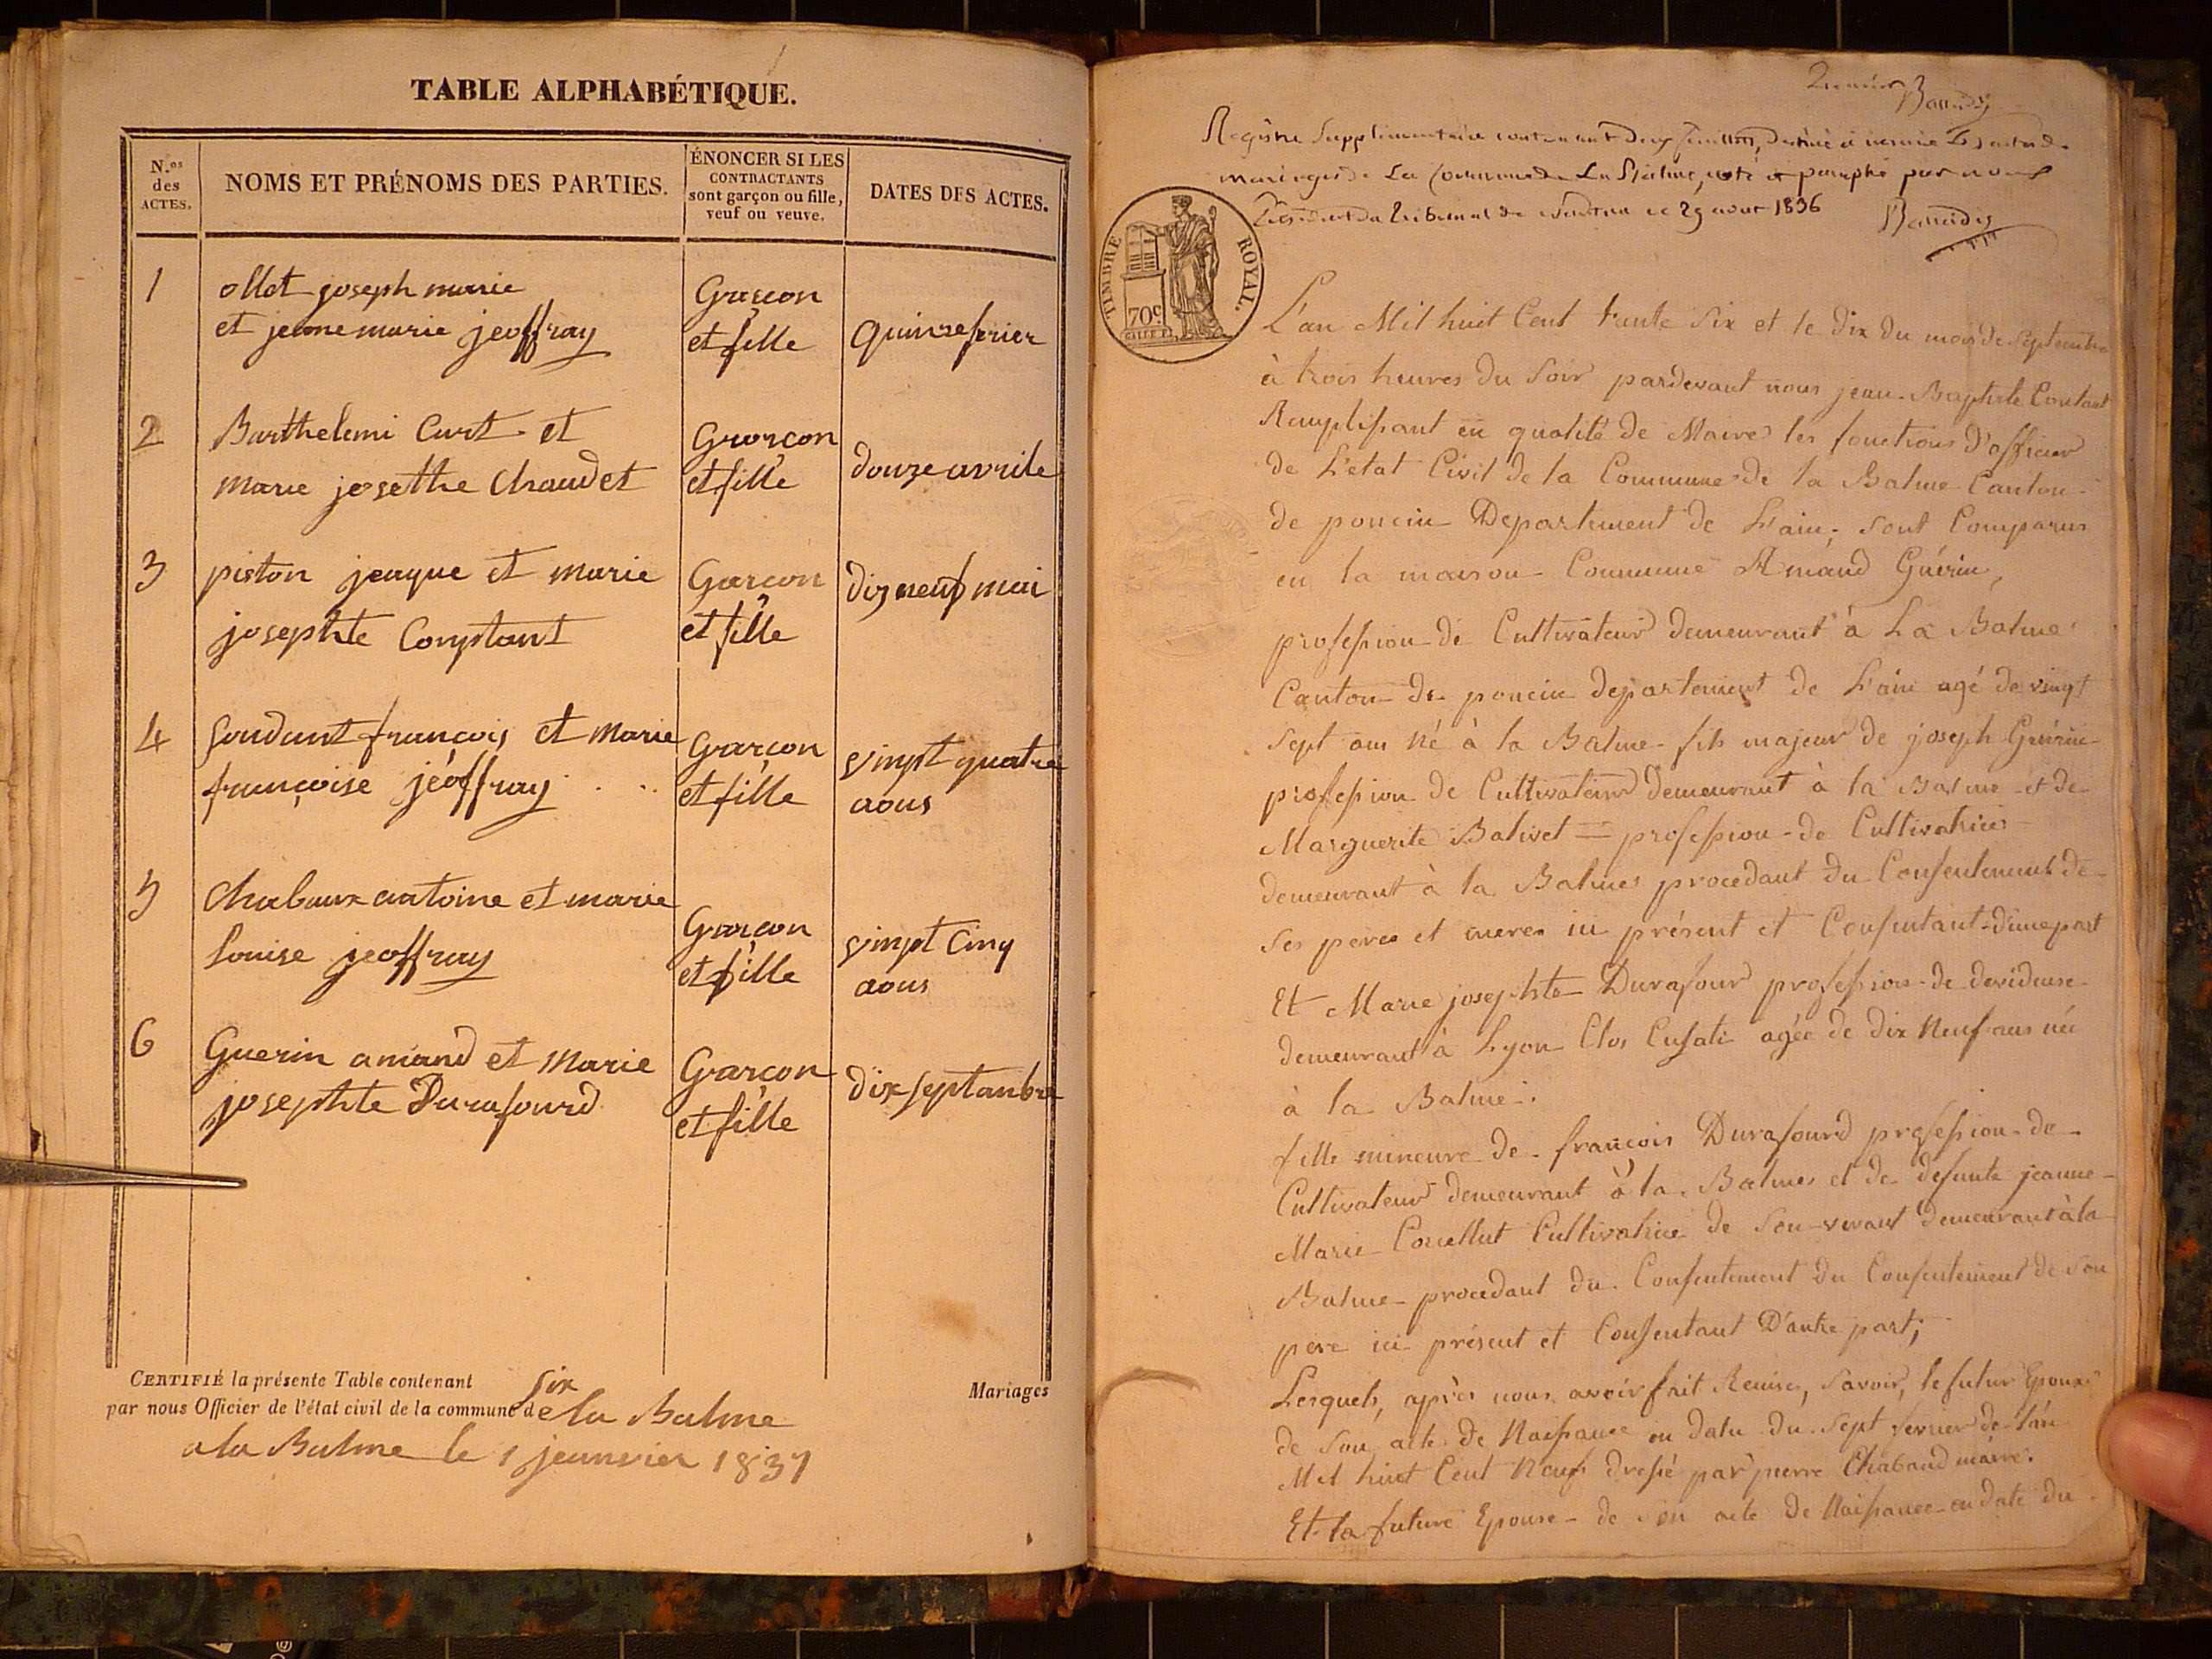 TABLE ALPHABÉTIQUE.
N.os des ACTES.
NOMS ET PRÉNOMS DES PARTIES.
ÉNONCER SI LES
CONTRACTANTS
sont garçon ou fille,
veuf ou veuve.
DATES DES ACTES.
1
ollet joseph marie
et jeanne marie jeoffray
Garçon
et fille
Quinze fevier
2
Barthelemi Curt et
marie josethe Chaudet
Garçon
et fille
douze avrile
3
piston jeaque et marie
josephte Constant
Garçon
et fille
dix neuf mai
4
goudant francois et marie
françoise jéoffray
Garçon
et fille
vingt quatre
aous
5
Chabaux antoine et marie
Louise jeoffray
Garçon
et fille
vingt Cinq
aous
6
Guerin amand et Marie
josephte Durafourd
Garçon
et fille
dix septanbre
CERTIFIÉ la présente Table contenant six
Mariages
par nous Officier de l'état civil de la commune de la Balme
a la Balme le 1 jeanvier 1837
Registre Supplémentaire contenant deux feuillets, destiné à
mariages de la Commune de La Balme, coté et paraphé par nous
Président du Tribunal de Nantua ce 29 aout 1836
TIMBRE ROYAL.
70c
L'an Mil huit Cent trente Six et le dix du mois de Septembre
à trois heures du Soir pardevant nous jean-Baptiste Contant
Remplissant en qualité de Maire les fonctions d'officier
de L'etat Civil de la Commune de la Balme Canton
de poncin Departement de L'ain, sont Comparus
en la maison Commune Amand Guérin,
profession de Cultivateur demeurant à La Balme
Canton de poncin departement de L'ain agé de vingt
Sept ans né à la Balme fils majeur de joseph Guérin
profession de Cultivateur demeurant à la Balme et de
Marguerite Balivet = profession de Cultivatrice
demeurant à la Balme procedant du Consentement de
Ses peres et meres ici présent et Consentant d'une part
Et Marie josephte Durafour profession de devideuse
demeurant à Lyon Clos agée de dix Neuf ans née
à la Balme.
fille mineure de françois Durafourd profession de
Cultivateur demeurant à la Balme et de defunte jeanne
Marie Cultivatrice de Son vivant demeurant à la
Balme procedant du Consentement du Consentement de son
pere ici présent et Consentant D'autre part;
Lesquels, après nous avoir fait Remise, Savoir, le futur Epoux
de son acte de Naissance en date du Sept fevrier de l'an
Mil huit Cent Neuf dressé par pierre Chabaud maire.
Et la future Epouse de son acte de Naissance en date du